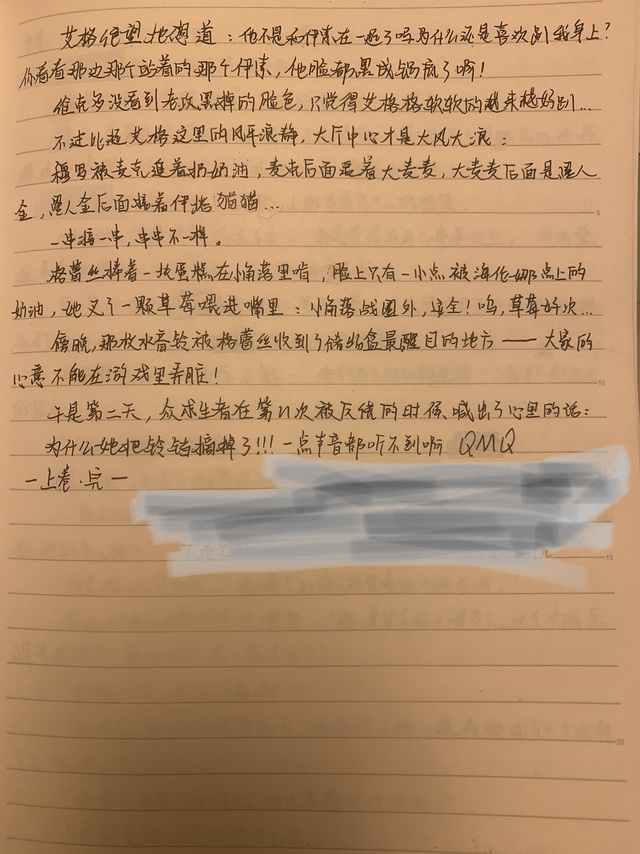 艾格绝望地得道：他不是和伊索在一起了吗为什么还是喜欢趴我身上？
你看看那边那个站着的那个伊索，他脸都黑成锅底了啊！
维克多没看到老攻黑掉的脸色，只觉得艾格格软软的越来越好趴…
不过比起艾格这里的风平浪静，大厅中心才是大风大浪：
穆罗被麦克追着扔奶油，麦克后面跟着大麦麦，大麦麦后面是愚人
金，愚人金后面接着伊塔猫猫…
一串接一串，串串不一样。
格蕾丝捧着一块蛋糕在小角落里啃，脸上只有一小点被海伦娜点上的
奶油，她叉了一颗草莓喂进嘴里：小角落战圈外，安全！呜，草莓好次…
傍晚，那枚水音铃被格蕾丝收到了储物盒最醒目的地方——大家的
心意不能在游戏里弄脏！
于是第二天，众求生者在第n次被反绕的时候喊出了心里的话：
为什么她把铃铛摘掉了!!!一点声音都听不到啊 QMQ
—上卷·完—
5
10
15
20